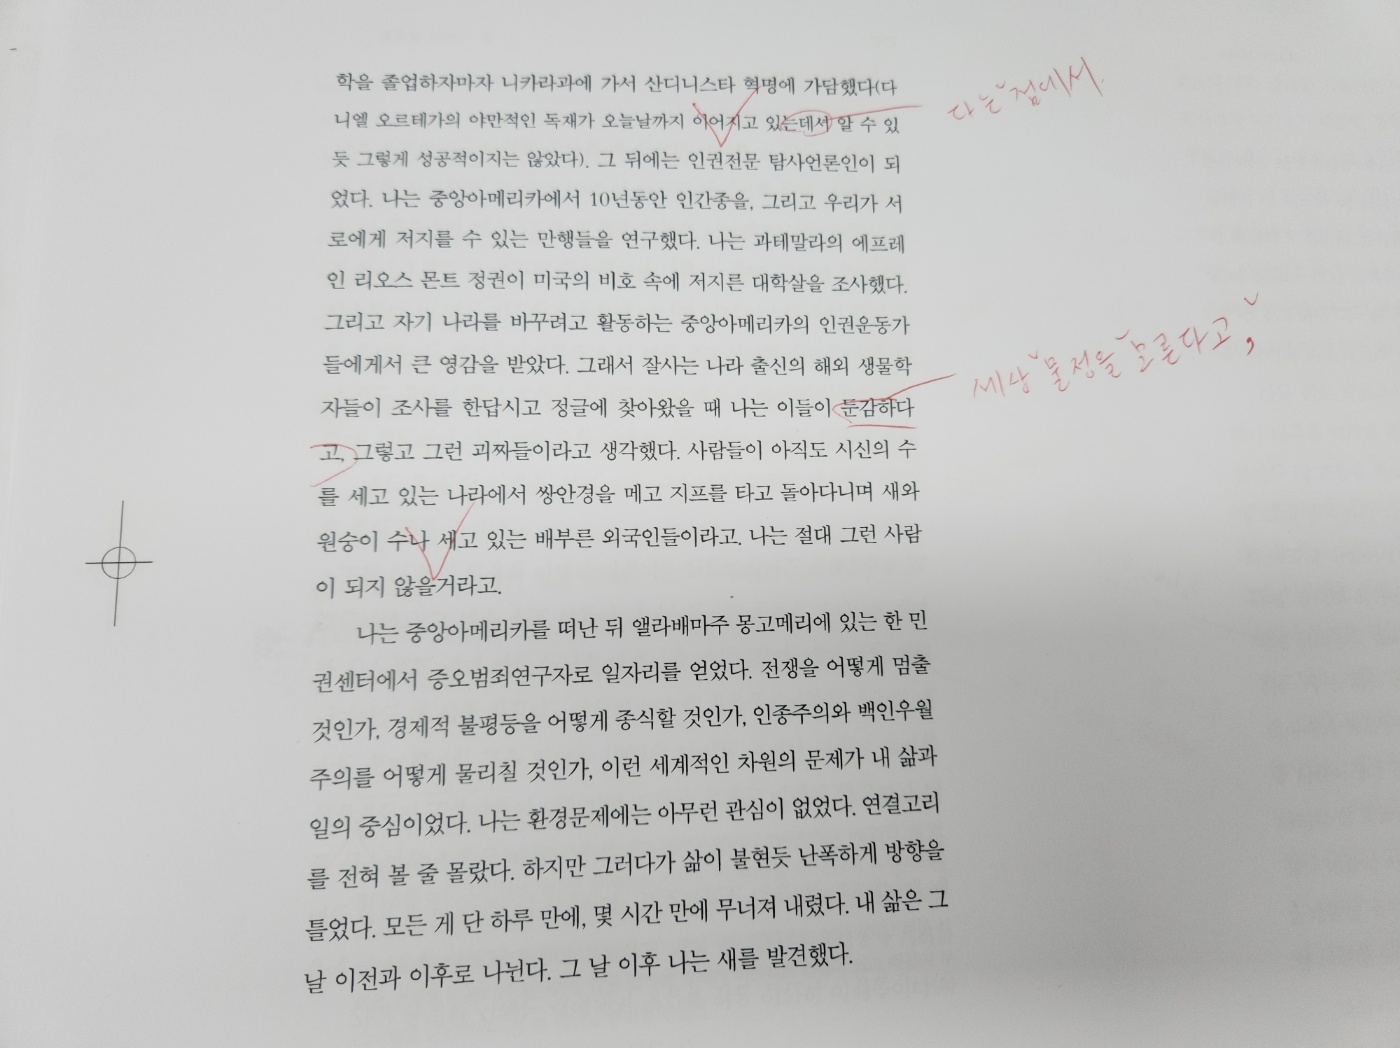 학을 졸업하자마자 니카라과에 가서 산디니스타 혁명에 가담했다(다
니엘 오르테가의 야만적인 독재가 오늘날까지 이어지고 있는데서 알 수 있
다는 점에서.
듯 그렇게 성공적이지는 않았다). 그 뒤에는 인권전문 탐사언론인이 되
었다. 나는 중앙아메리카에서 10년동안 인간종을, 그리고 우리가 서
로에게 저지를 수 있는 만행들을 연구했다. 나는 과테말라의 에프레
인 리오스 몬트 정권이 미국의 비호 속에 저지른 대학살을 조사했다.
그리고 자기 나라를 바꾸려고 활동하는 중앙아메리카의 인권운동가
들에게서 큰 영감을 받았다. 그래서 잘사는 나라 출신의 해외 생물학
자들이 조사를 한답시고 정글에 찾아왔을 때 나는 이들이 둔감하다
세상 물정을 모른다고,
고, 그렇고 그런 괴짜들이라고 생각했다. 사람들이 아직도 시신의 수
를 세고 있는 나라에서 쌍안경을 메고 지프를 타고 돌아다니며 새와
원숭이 수나 세고 있는 배부른 외국인들이라고. 나는 절대 그런 사람
이 되지 않을거라고.
나는 중앙아메리카를 떠난 뒤 앨라배마주 몽고메리에 있는 한 민
권센터에서 증오범죄연구자로 일자리를 얻었다. 전쟁을 어떻게 멈출
것인가, 경제적 불평등을 어떻게 종식할 것인가, 인종주의와 백인우월
주의를 어떻게 물리칠 것인가, 이런 세계적인 차원의 문제가 내 삶과
일의 중심이었다. 나는 환경문제에는 아무런 관심이 없었다. 연결고리
를 전혀 볼 줄 몰랐다. 하지만 그러다가 삶이 불현듯 난폭하게 방향을
틀었다. 모든 게 단 하루 만에, 몇 시간 만에 무너져 내렸다. 내 삶은 그
날 이전과 이후로 나뉜다. 그 날 이후 나는 새를 발견했다.